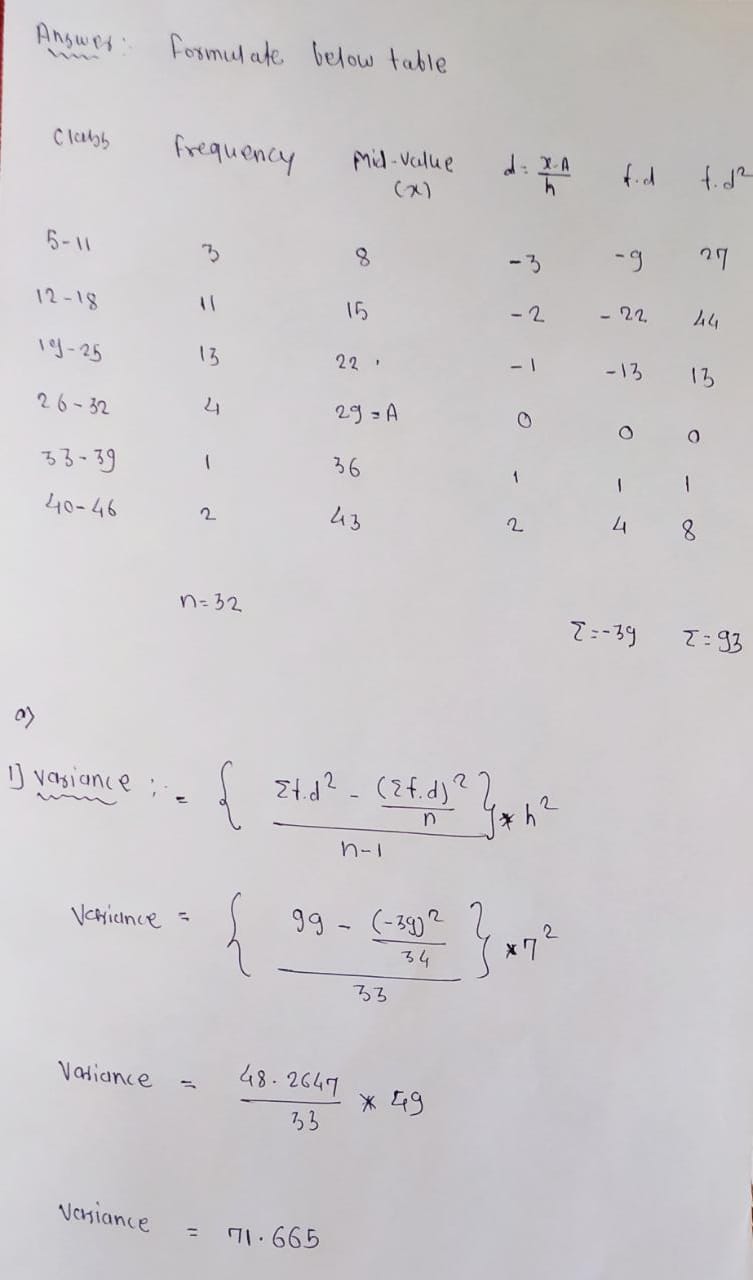 Answer: Formulate below table
Class frequency Mid-value (x) d = x-A/h f.d f.d²
5-11 3 8 -3 -9 27
12-18 11 15 -2 -22 44
19-25 13 22 -1 -13 13
26-32 4 29=A 0 0 0
33-39 1 36 1 1 1
40-46 2 43 2 4 8
n=32
Σ=-39 Σ=93
a)
1) variance := { Σf.d² - (Σf.d)²/n / n-1 } * h²
Variance = { 99 - (-39)²/34 / 33 } * 7²
Variance = 48.2647/33 * 49
Variance = 71.665